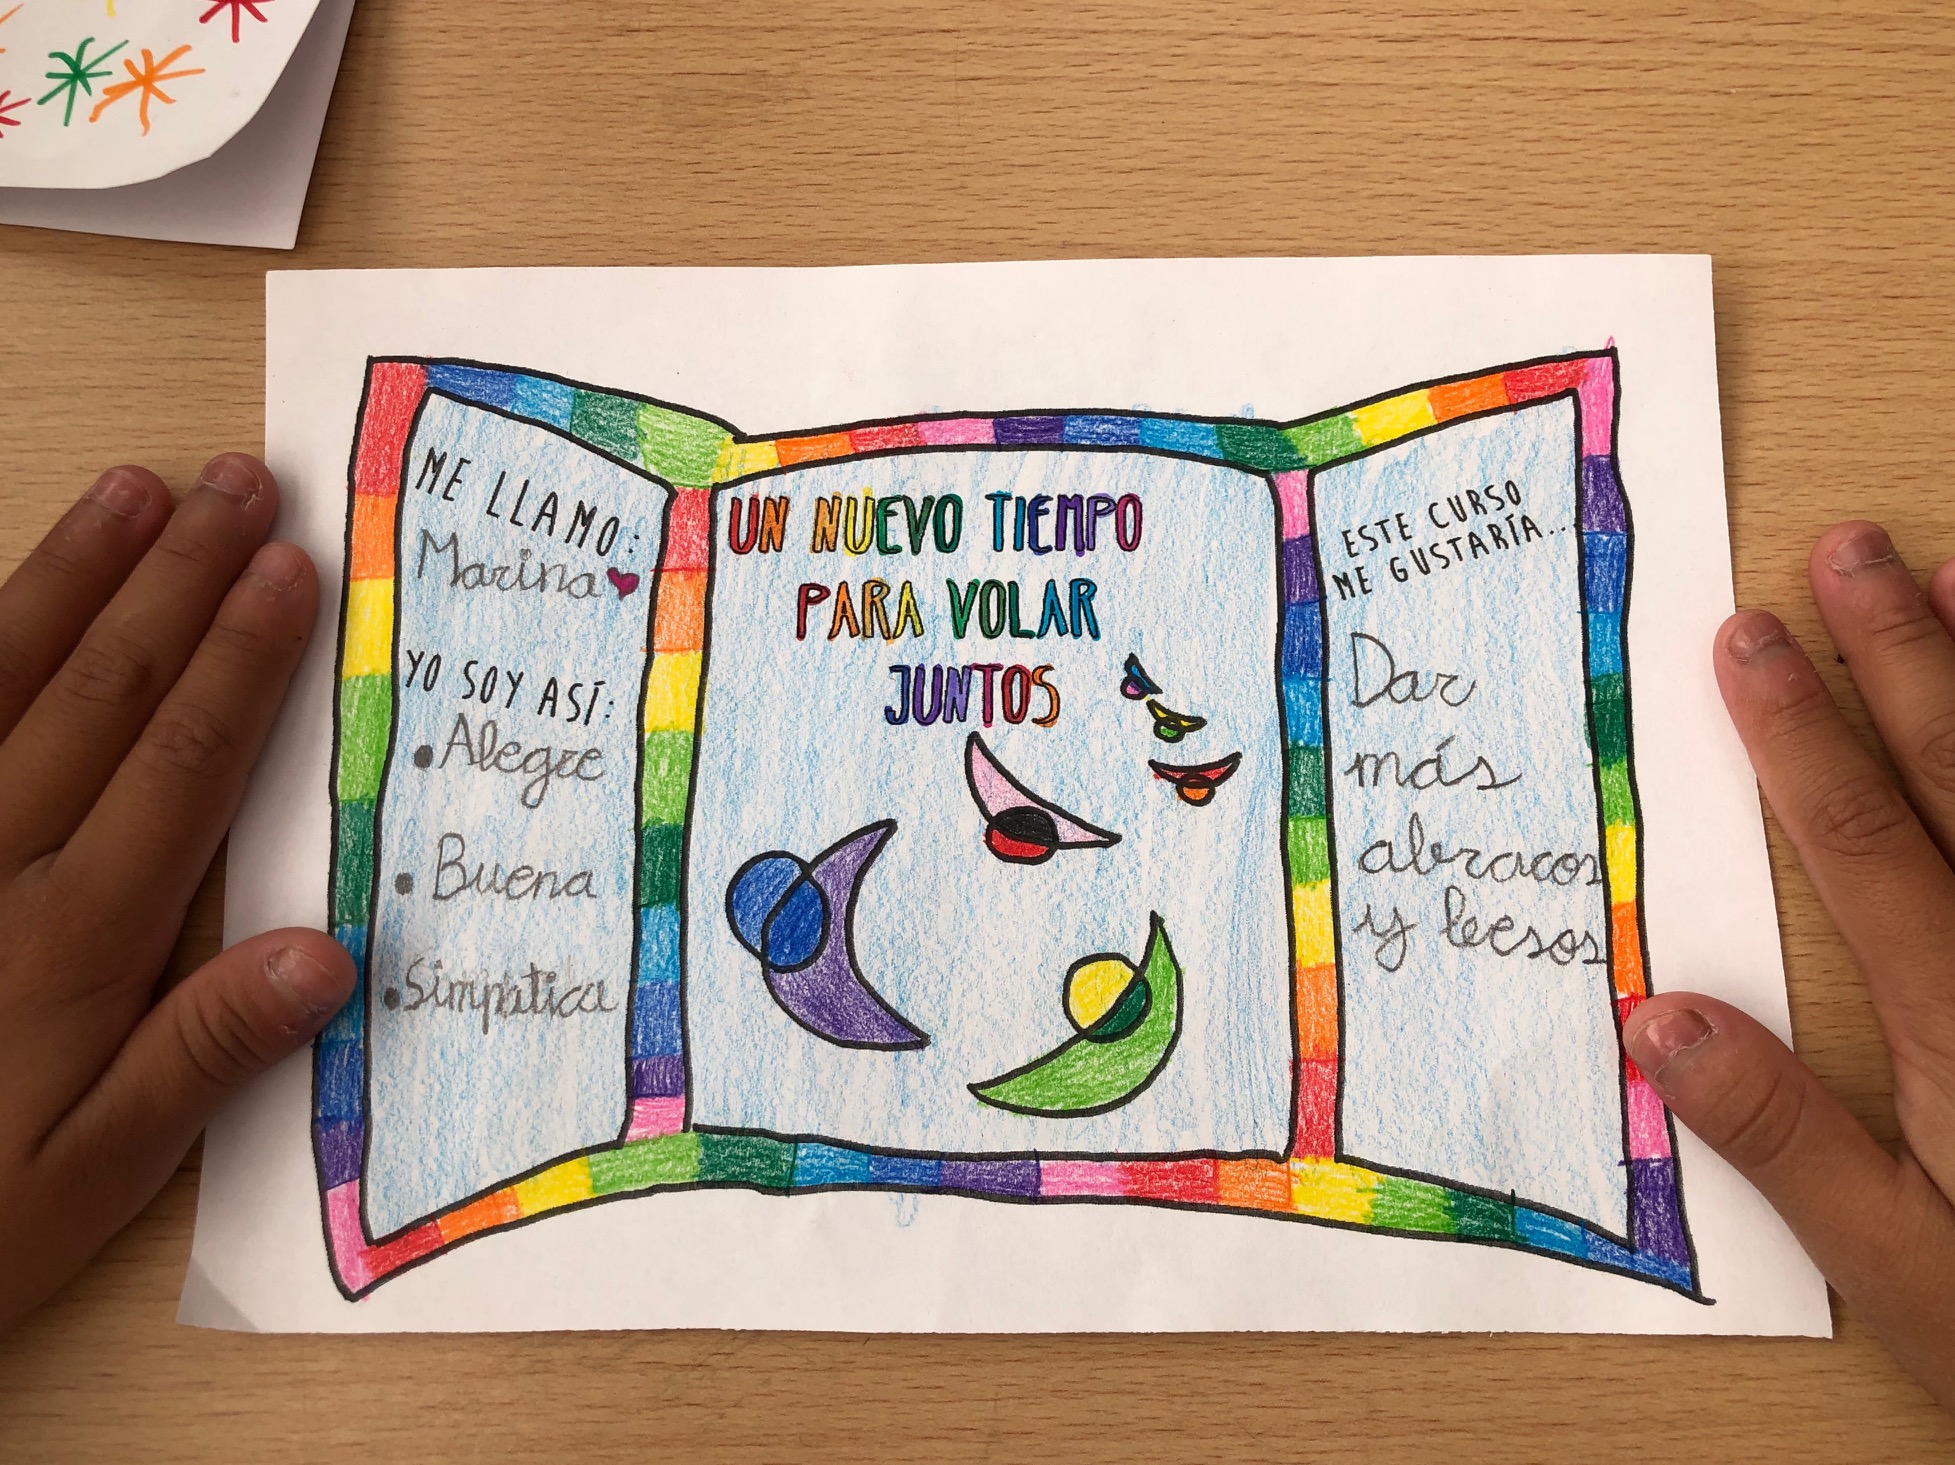 ME LLAMO:
Marina
YO SOY ASÍ:
• Alegre
• Buena
• Simpatica
UN NUEVO TIEMPO
PARA VOLAR
JUNTOS
ESTE CURSO
ME GUSTARÍA...
Dar
más
abracos
y besos